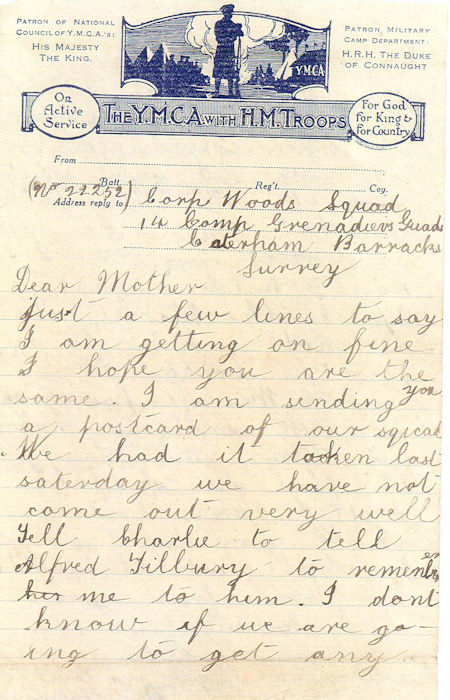 PATRON OF NATIONAL
COUNCIL OF Y.M.C.A's:
HIS MAJESTY
THE KING.
PATRON MILITARY
CAMP DEPARTMENT-
H.R.H. THE DUKE
OF CONNAUGHT
Y.M.C.A
On
Active
Service
THE Y.M.C.A. WITH H.M. TROOPS
For God
for King &
for Country
From
Batt. Reg't. Coy.
(No 22252) Corp Woods Squad
Address reply to 14 Comp Grenadiers Guads
Caterham Barracks
Surrey
Dear Mother
just a few lines to say
I am getting on fine
I hope you are the
same. I am sending you
a postcard of our squad
We had it taken last
saterday we have not
come out very well
Tell Charlie to tell
Alfred Tilbury to rememb er
her me to him. I dont
know if we are go-
ing to get any